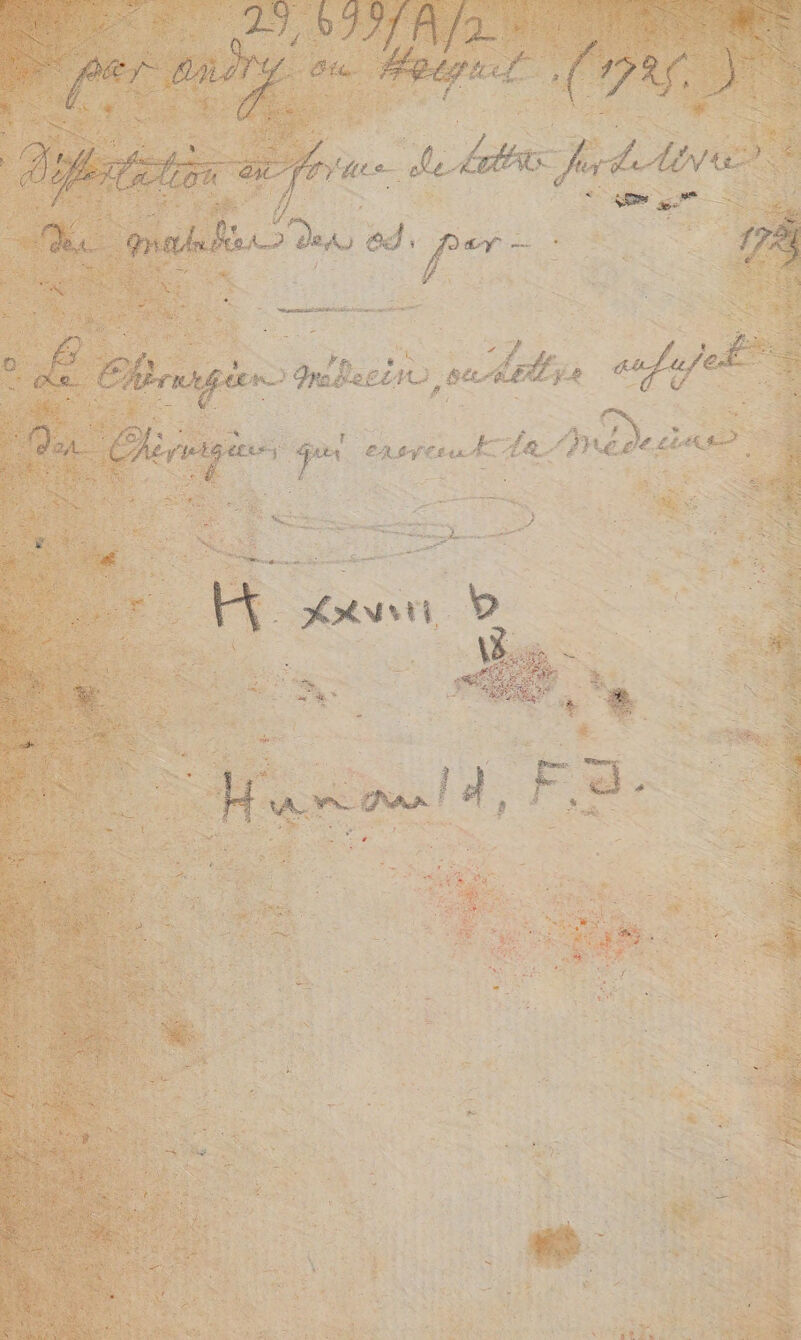 29,699/A/2
par andry ou Hecquet . (1725.)
Dissertation en forme de Lettre sur Le Livre
des maladies des os. par - 1725
° Le Chirurgien Médecin, ou Lettre au sujet
des Chirurgiens qui exercent la Médecine
H xxviii b
18
Hunauld, F.J.